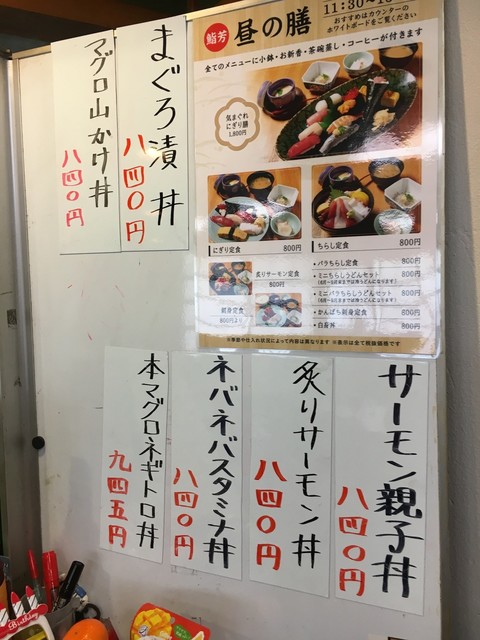 鮨芳
昼の膳
おすすめはカウンターの
ホワイトボードをご覧ください
全てのメニューに小鉢・お新香・茶碗蒸し・コーヒーが付きます
気まぐれ
にぎり膳
1,800円
にぎり定食 800円
ちらし定食 800円
炙りサーモン定食
800円
刺身定食
800円より
・バラちらし定食 800円
・ミニちらしうどんセット 800円
・ミニバラちらしうどんセット 800円
・かんぱち刺身定食 800円
※季節や仕入れ状況によって内容は異なります ※表示は全て税抜価格です
まぐろ漬丼
八四〇円
マグロ山かけ丼
八四〇円
サーモン親子丼
八四〇円
炙りサーモン丼
八四〇円
ネバネバスタミナ丼
八四〇円
本マグロネギトロ丼
九四五円